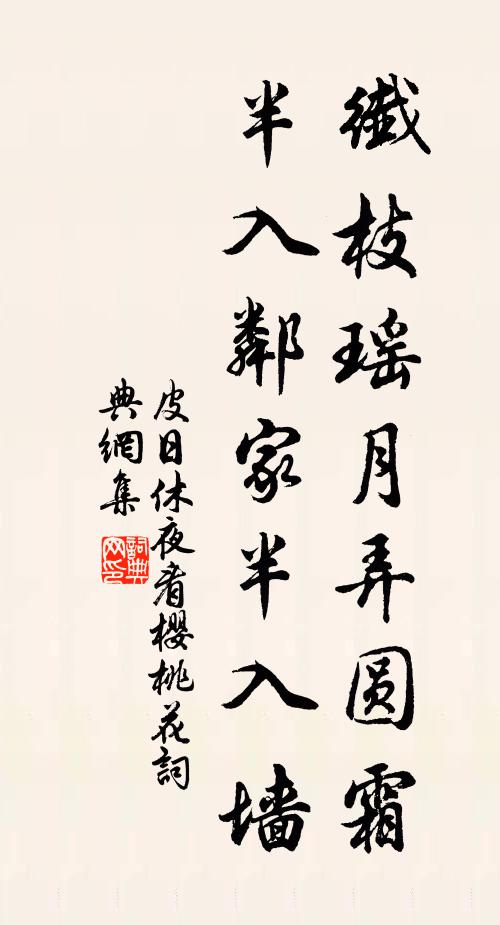 纖枝瑶月弄圆霜
半入鄰家半入墙
皮日休夜看櫻桃花詞
典網集
詞典网印